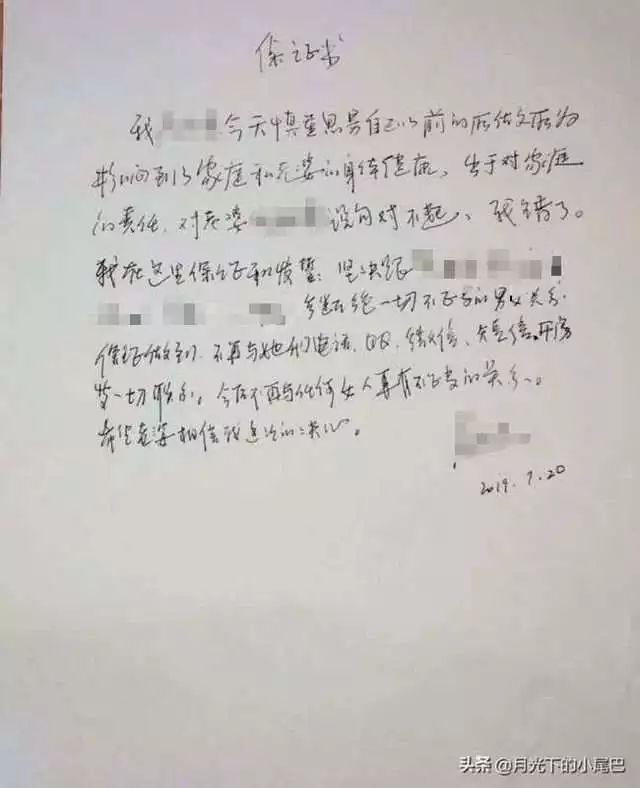 保证书
我 今天慎重思量自己以前的所做文所为
影响到了家庭和老婆的身体健康，出于对家庭
的责任，对老婆 说句对不起、我错了。
我在这里保证和发誓：坚决跟
断绝一切不正当的男女关系.
保证做到，不再与她们电话、QQ、微信、短信、开房
等一切联系。今后不再与任何女人再有不正当的关系。
希望老婆相信我这次的决心。
2019.7.20
头条 @月光下的小尾巴